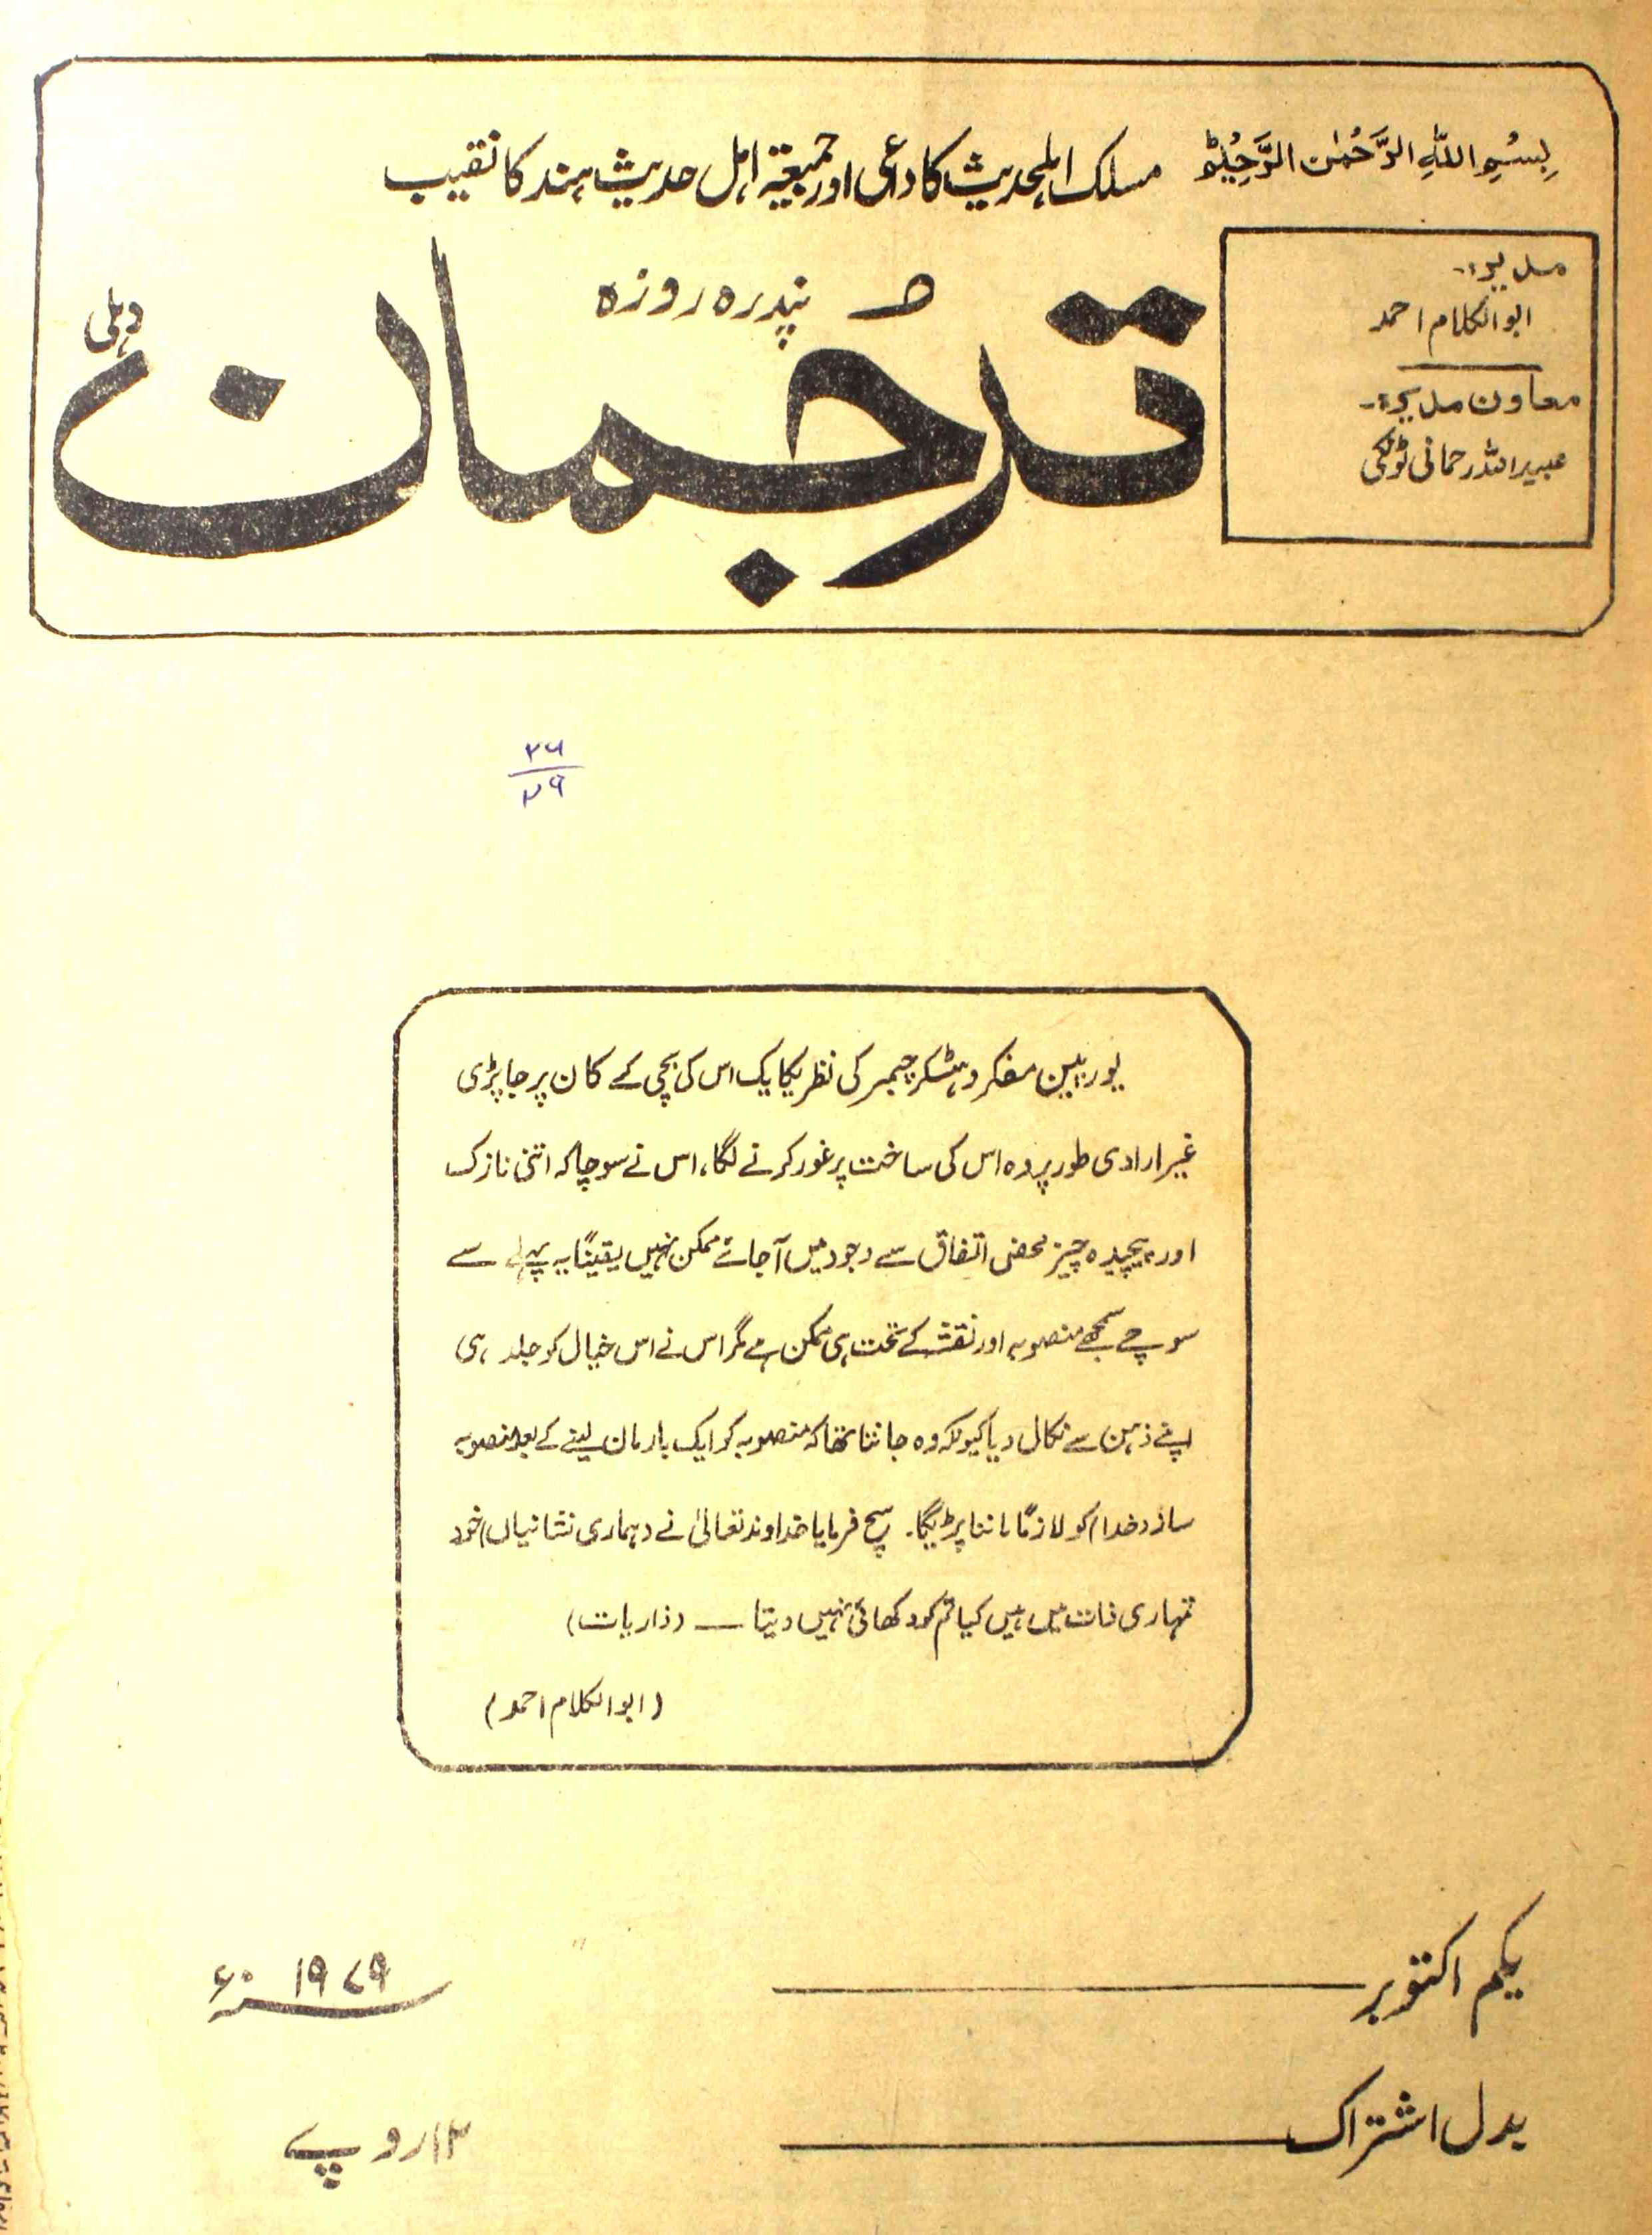 بِسْمِ اللهِ الرَّحْمٰنِ الرَّحِيْمِ
مسلک اہلحدیث کا داعی اور جمعیۃ اہل حدیث ہند کا نقیب
مدیر:-
ابوالکلام احمد
معاون مدیر:-
عبیداللہ رحمانی ٹونکی
پندرہ روزہ
ترجمان
دہلی
۲۶
۲۹
یوربین مفکر وہٹکر چیمبر کی نظر یکایک اس کی بچی کے کان پر جا پڑی
غیر ارادی طور پر وہ اس کی ساخت پر غور کرنے لگا، اس نے سوچا کہ اتنی نازک
اور پیچیدہ چیز محض اتفاق سے وجود میں آجائے ممکن نہیں یقیناً یہ پہلے سے
سوچے سمجھے منصوبہ اور نقشے کے تحت ہی ممکن ہے مگر اس نے اس خیال کو جلد ہی
اپنے ذہن سے نکال دیا کیونکہ وہ جانتا تھا کہ منصوبہ کو ایک بار مان لینے کے بعد منصوبہ
ساز (خدا) کو لازماً ماننا پڑیگا۔ سچ فرمایا خداوند تعالیٰ نے (ہماری نشانیاں) خود
تمہاری ذات میں ہیں کیا تم کو دکھائی نہیں دیتا — (ذاریات)
(ابوالکلام احمد)
یکم اکتوبر ۱۹۷۹ء
بدل اشتراک ۱۲/روپے